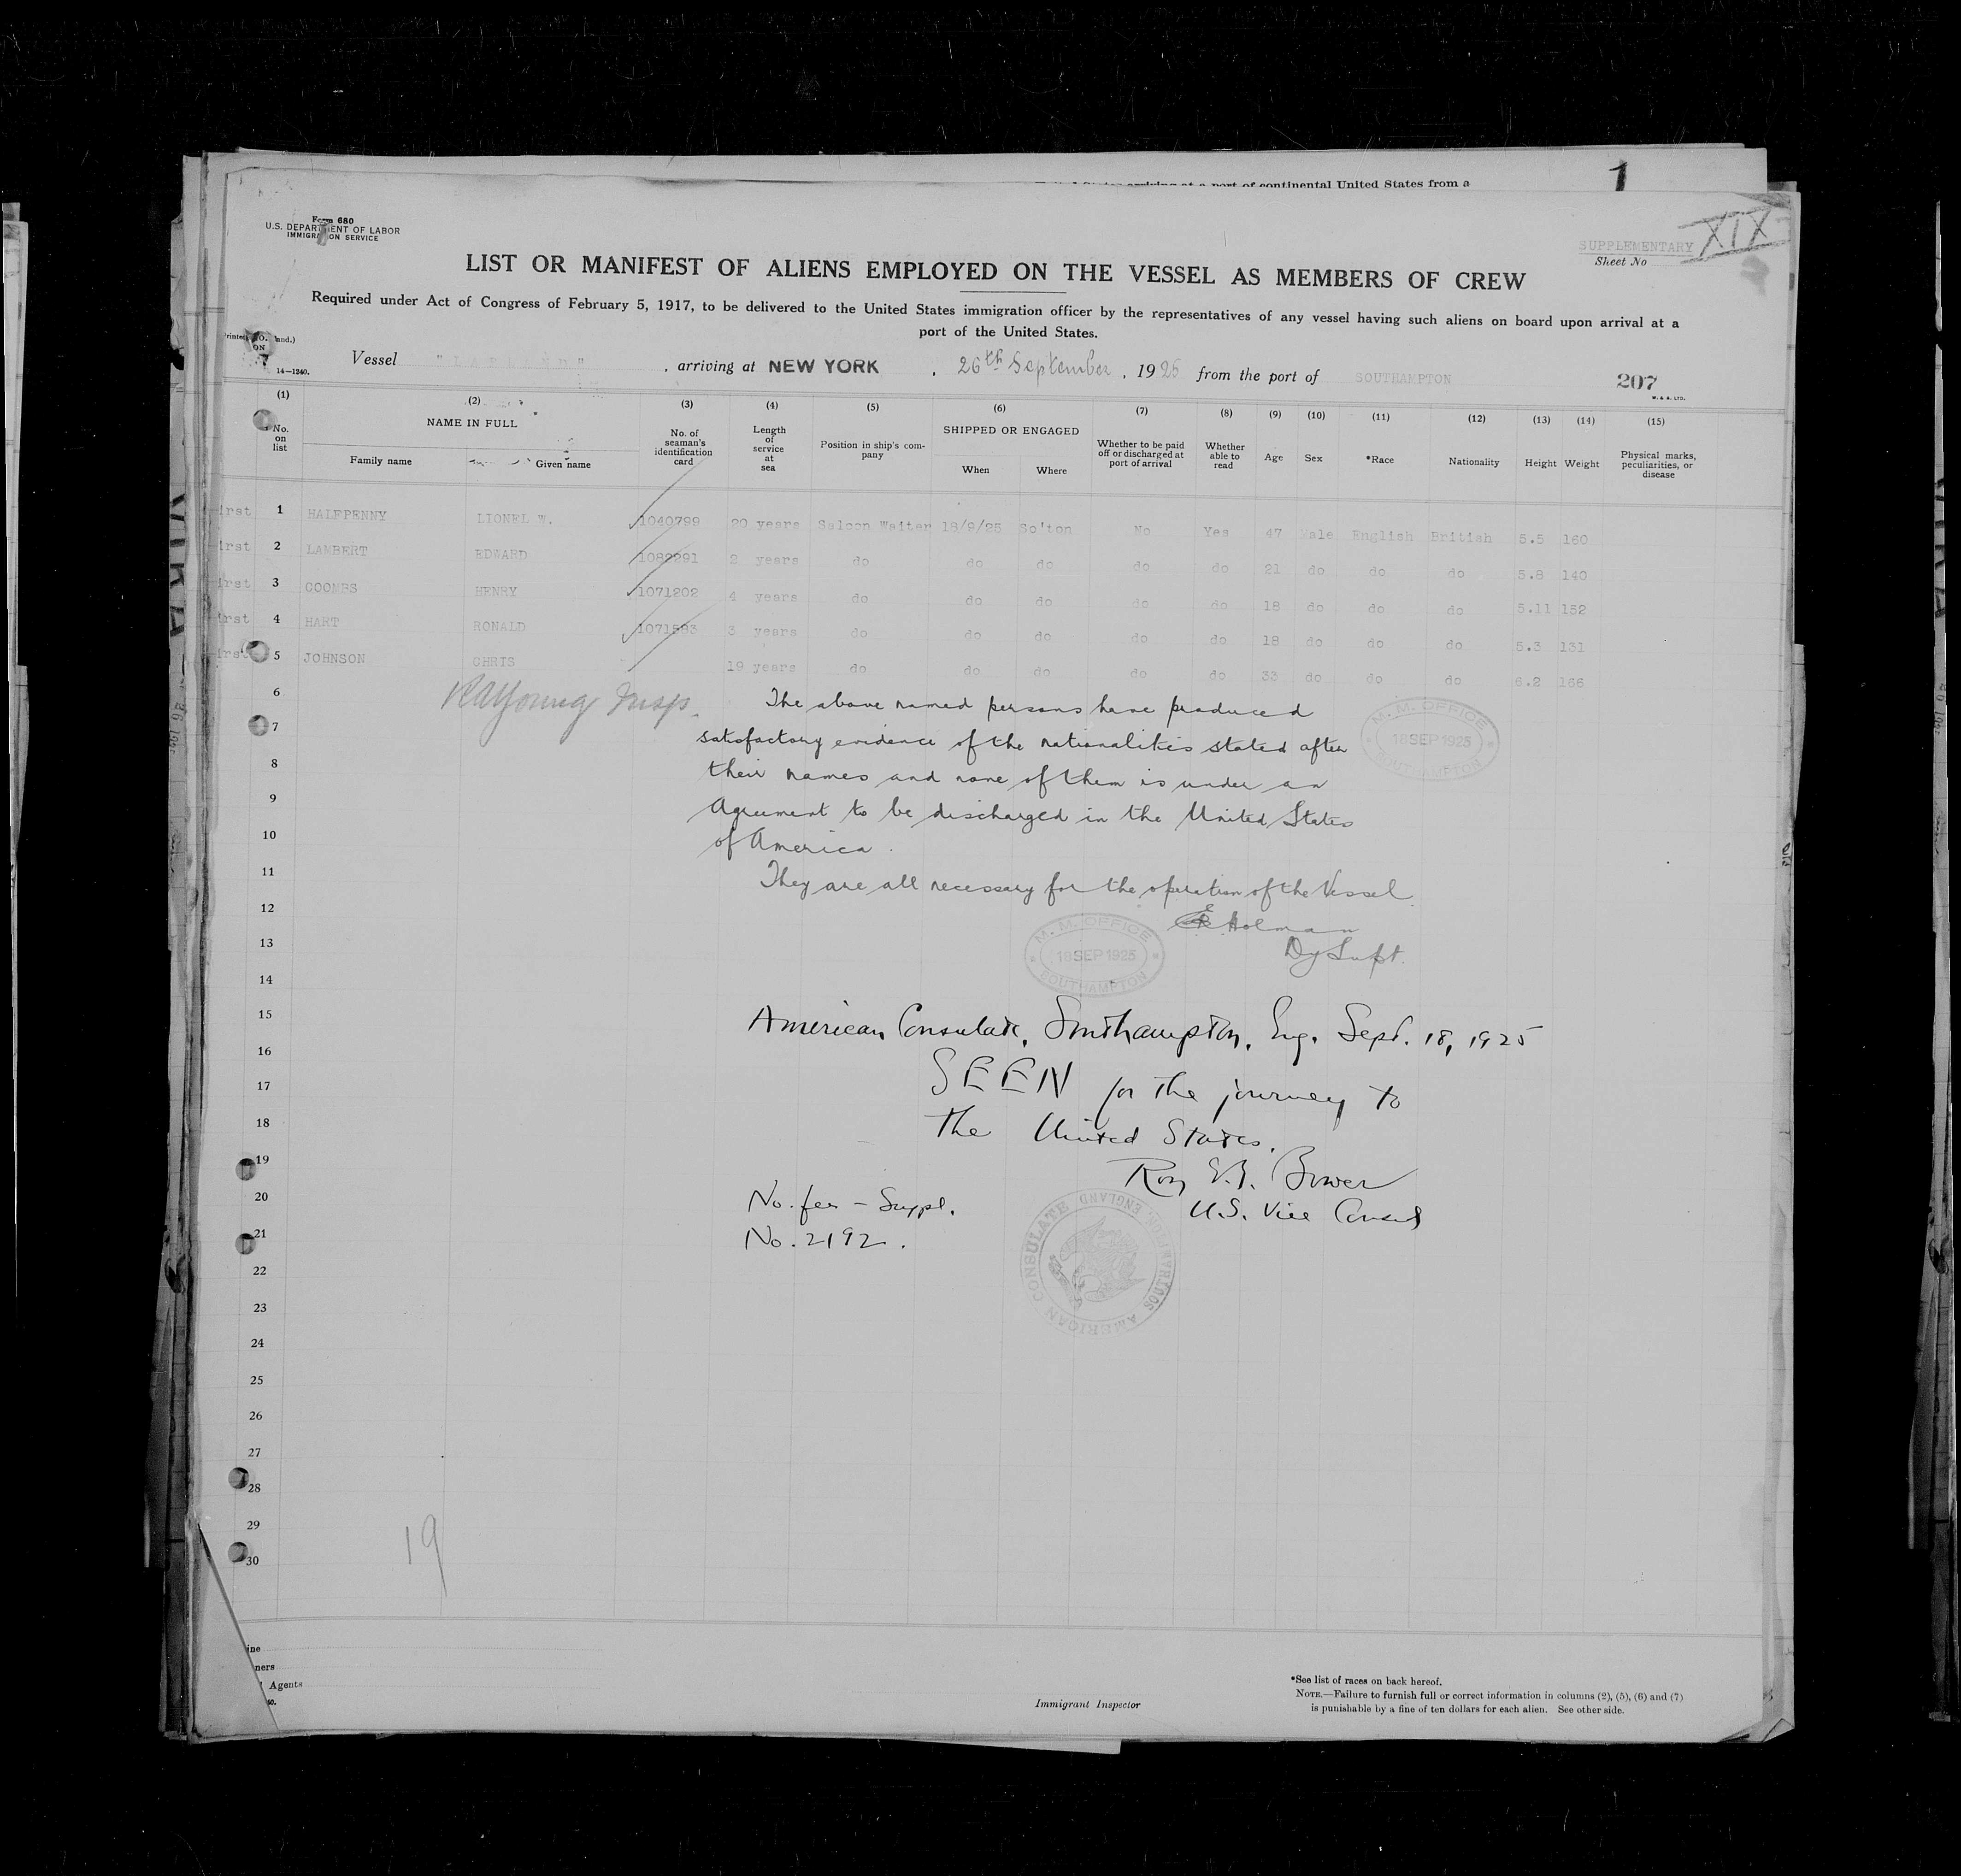 1
Form 680
U.S. DEPARTMENT OF LABOR
IMMIGRATION SERVICE
SUPPLEMENTARY XIX
Sheet No
LIST OR MANIFEST OF ALIENS EMPLOYED ON THE VESSEL AS MEMBERS OF CREW
Required under Act of Congress of February 5, 1917, to be delivered to the United States immigration officer by the representatives of any vessel having such aliens on board upon arrival at a
port of the United States.
14—1240.
Vessel "LAPLAND", arriving at NEW YORK, 26th September, 1925 from the port of SOUTHAMPTON 207
(1) (2) (3) (4) (5) (6) (7) (8) (9) (10) (11) (12) (13) (14) (15)
No. on list NAME IN FULL Family name Given name No. of seaman's identification card Length of service at sea Position in ship's company SHIPPED OR ENGAGED When Where Whether to be paid off or discharged at port of arrival Whether able to read Age Sex *Race Nationality Height Weight Physical marks, peculiarities, or disease
irst 1 HALFPENNY LIONEL W. 1040799 20 years Saloon Waiter 18/9/25 So'ton No Yes 47 Male English British 5.5 160
irst 2 LAMBERT EDWARD 1082291 2 years do do do do do 21 do do do 5.8 140
irst 3 COOMBS HENRY 1071202 4 years do do do do do 18 do do do 5.11 152
irst 4 HART RONALD 1071593 3 years do do do do do 18 do do do 5.3 131
irst 5 JOHNSON CHRIS 19 years do do do do do 33 do do do 6.2 166
6
7
8
9
10
11
12
13
14
15
16
17
18
19
20
21
22
23
24
25
26
27
28
29
30
RAYoung Insp.
The above named persons have produced
satisfactory evidence of the nationalities stated after
their names and none of them is under an
Agreement to be discharged in the United States
of America.
They are all necessary for the operation of the Vessel.
Holman
Dy Supt.
M. M. OFFICE
18 SEP 1925
SOUTHAMPTON
M. M. OFFICE
18 SEP 1925
SOUTHAMPTON
American Consulate, Southampton, Eng. Sept. 18, 1925
SEEN for the journey to
the United States.
Roy E.B. Bower
U.S. Vice Consul
No. fee - Suppl.
No. 2192.
AMERICAN CONSULATE SOUTHAMPTON, ENGLAND
19
Agents
Immigrant Inspector
*See list of races on back hereof.
NOTE.—Failure to furnish full or correct information in columns (2), (5), (6) and (7)
is punishable by a fine of ten dollars for each alien. See other side.